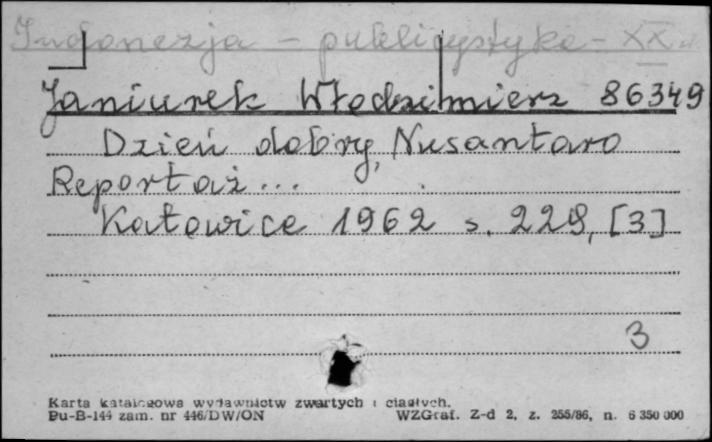 Indonezja - publicystyka - XX w.
Janiurek Włodzimierz 86349
Dzień dobry, Nusantaro
Reportaż...
Katowice 1962 s. 228, [3]
3
Karta katalogowa wydawnictw zwartych i ciągłych.
Pu-B-144 zam. nr 446/DW/ON WZGraf. Z-d 2, z. 255/86, n. 6 350 000